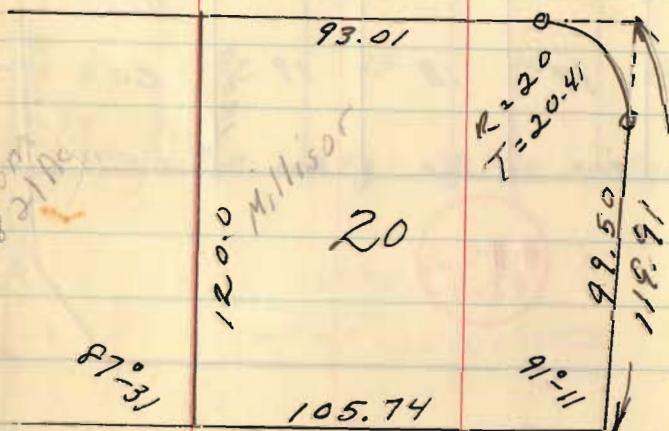 93.01
R = 20
T = 20.41
Millisor
20
120.0
99.50
119.91
87°-31
91°-11
105.74